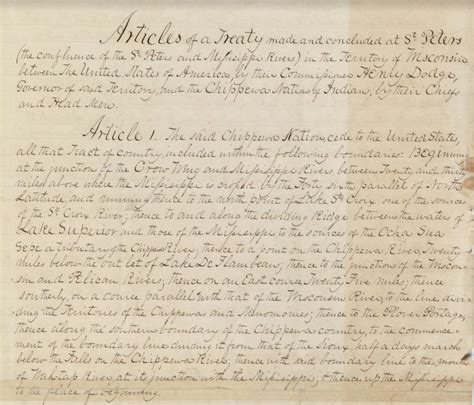 Articles of a Treaty made and concluded at St Peters
(the confluence of the St Peters and Mississippi Rivers) in the Territory of Wisconsin
between The United States of America, by their Commissioner, Henry Dodge,
Governor of said Territory, and the Chippewa Nation of Indians, by their Chiefs
and Head Men.
Article 1. The said Chippewa Nation, cede to the United States,
all that Tract of country, included within the following boundaries: Beginning
at the junction of the Crow Wing and Mississippi Rivers, between Twenty and thirty
miles above where the Mississippi is crossed by the Forty sixth parallel of North
Latitude, and running thence to the north point of Lake St Croix, one of the sources
of the St Croix River; thence to and along the dividing Ridge between the waters of
Lake Superior and those of the Mississippi, to the sources of the Ocha Sua
Sepe a tributary of the Chippewa River; thence to a point on the Chippewa River, Twenty
miles below the out let of Lake De Flambeau; thence to the junction of the Wiscon-
sin and Pelican Rivers; thence on an East course Twenty Five miles; thence
southerly, on a course parallel with that of the Wisconsin River, to the line divi-
ding the Territories of the Chippewas and Menomonies; thence to the Plover Portage;
thence along the southern boundary of the Chippewa country, to the commence-
ment of the boundary line dividing it from that of the Sioux, half a days march
below the Falls on the Chippewa River; thence with said boundary line to the mouth
of Wah tap River, at its junction with the Mississippi; & thence up the Mississippi
to the place of beginning.